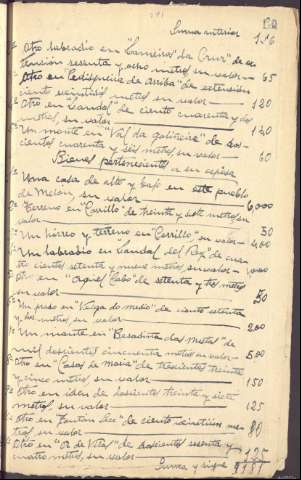 Suma anterior 156
Otro labradio en "Cameiros da Cruz" de extensión sesenta y ocho metros, su valor— 65
Otro en de arriba" de extensión
ciento veintiseis metros, su valor— 120
Otro en "Candal" de ciento cuarenta y dos
metros, su valor— 140
Un monte en "Val da galiñeira" de doscientos cuarenta y seis metros, su valor— 60
Bienes pertenecientes a su esposa
Una casa de alto y bajo en este pueblo
de Melon, su valor— 6,000
Terreno en "Carrillo" de treinta y siete metros, su
valor— 30
Un hórreo y terreno en "Carrillo", su valor— 400
Un labradio en "Candal del Rey" de
cientos setenta y nueve metros, su valor—
Otro en "Cabo" de setenta y tres metros
su valor— 50
Un prado en "Veiga do medio" de ciento setenta
y dos metros, su valor— 200
Un monte en
mil doscientos cincuenta metros, su valor— 500
Otro en "Casas de Maria" de trescientos treinta
y cinco metros, su valor— 150
Otro en idem de doscientos treinta y siete
metros, su valor— 125
Otro en de ciento
metros, su valor— 80
Otro en de doscientos sesenta y
cuatro metros, su valor— 125
Suma y sigue